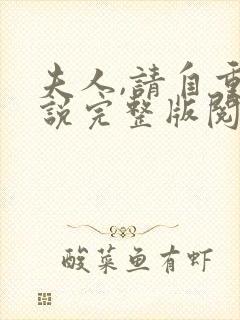 夫人,請自重
說完整版閱
酸菜鱼有虾